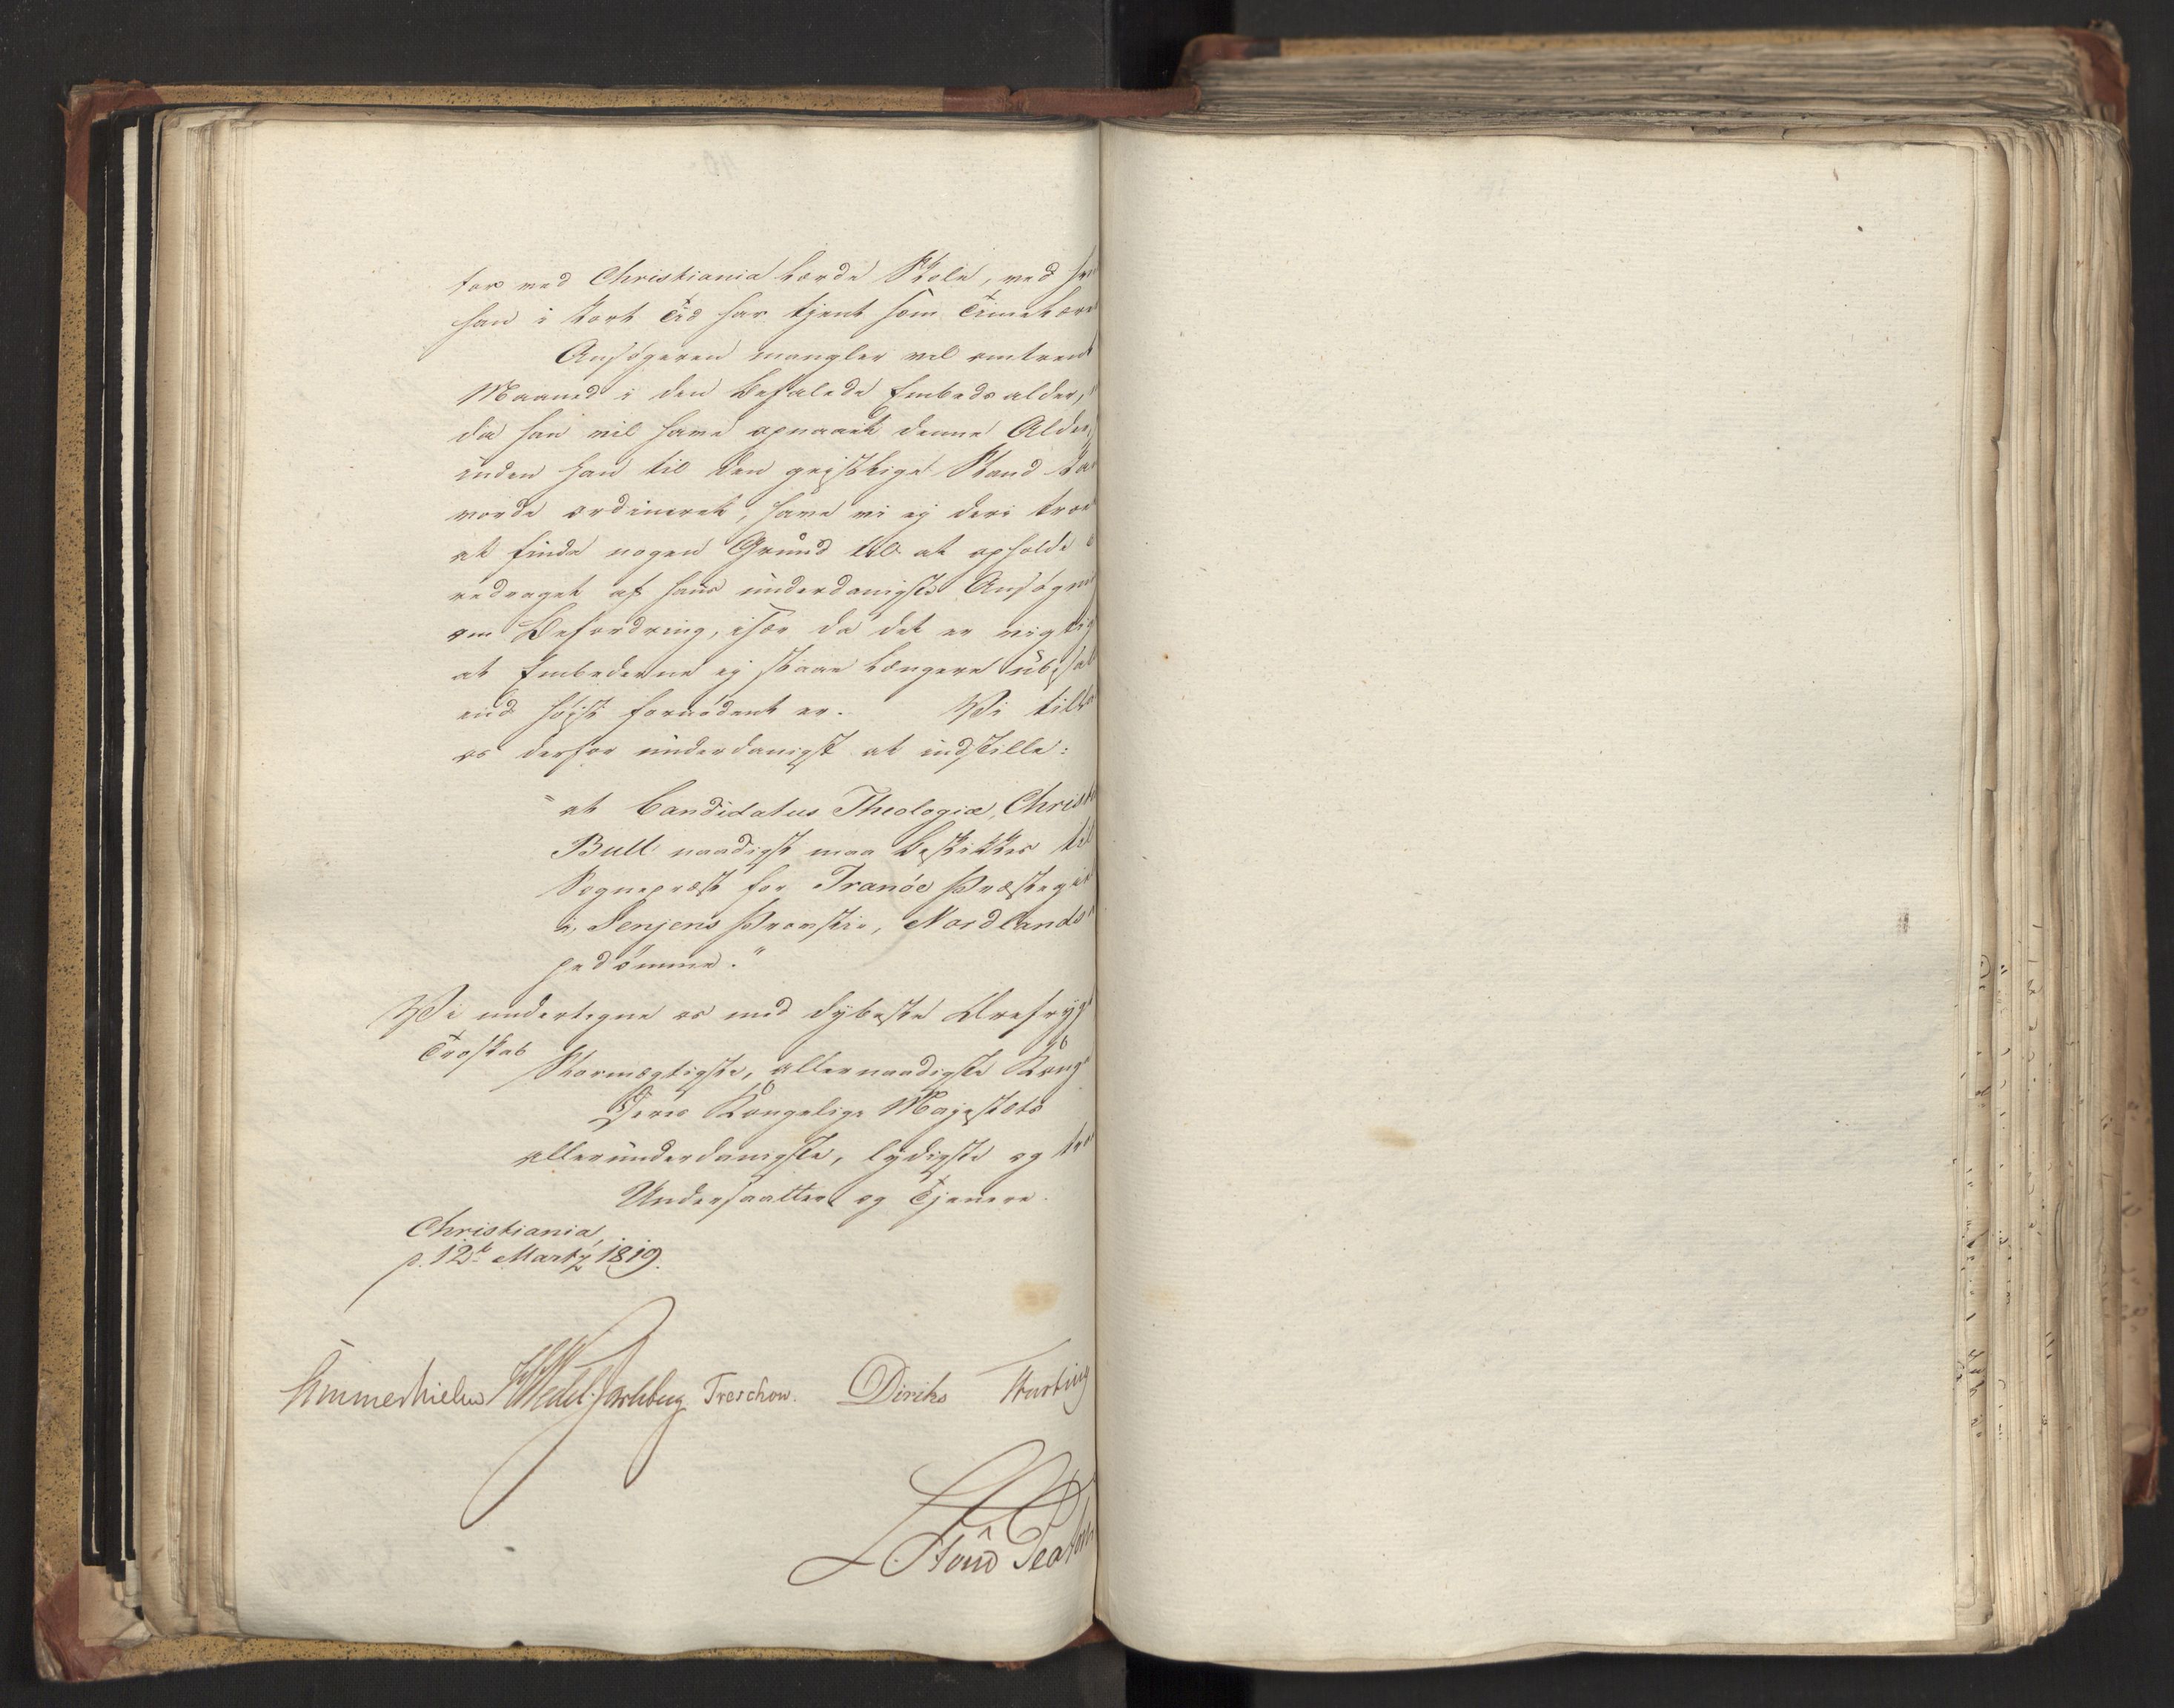 tor ved Christiania lærde Skole, ved
han i kort Tid har tjent som Timelære
Ansøgeren mangler vel omtrent
Maaned i den befalede Embedsalder,
da han vil have opnaaet denne Alder,
inden han til den geistlige Stand kan
vorde ordineret, have vi ej deri troet
at finde nogen Grund til at opholde
redraget af hans underdanigste Ansøgni
om Befordring, især da det er vigtig
at Embederne ej staae længere ubesat
end højst fornødent er. Vi tilla
os derfor underdanigst at indstille:
"at Candidatus Theologiæ, Christ
Bull naadigst maa beskikkes til
Sognepræst for Tranöe Præstegie
i Senjens Provstie, Nordlands
pedømme."
Vi undertegne os med dybeste Ærefrygt
Troskab
Stormægtigste, allernaadigste Konge
Deres Kongelige Majestæts
allerunderdanigste, lydigste og tro
Undersaatter og Tjenere.
Christiania,
p. 12te Martz 1819.
Sommerhielm Wedel Jarlsberg Treschow. Diriks